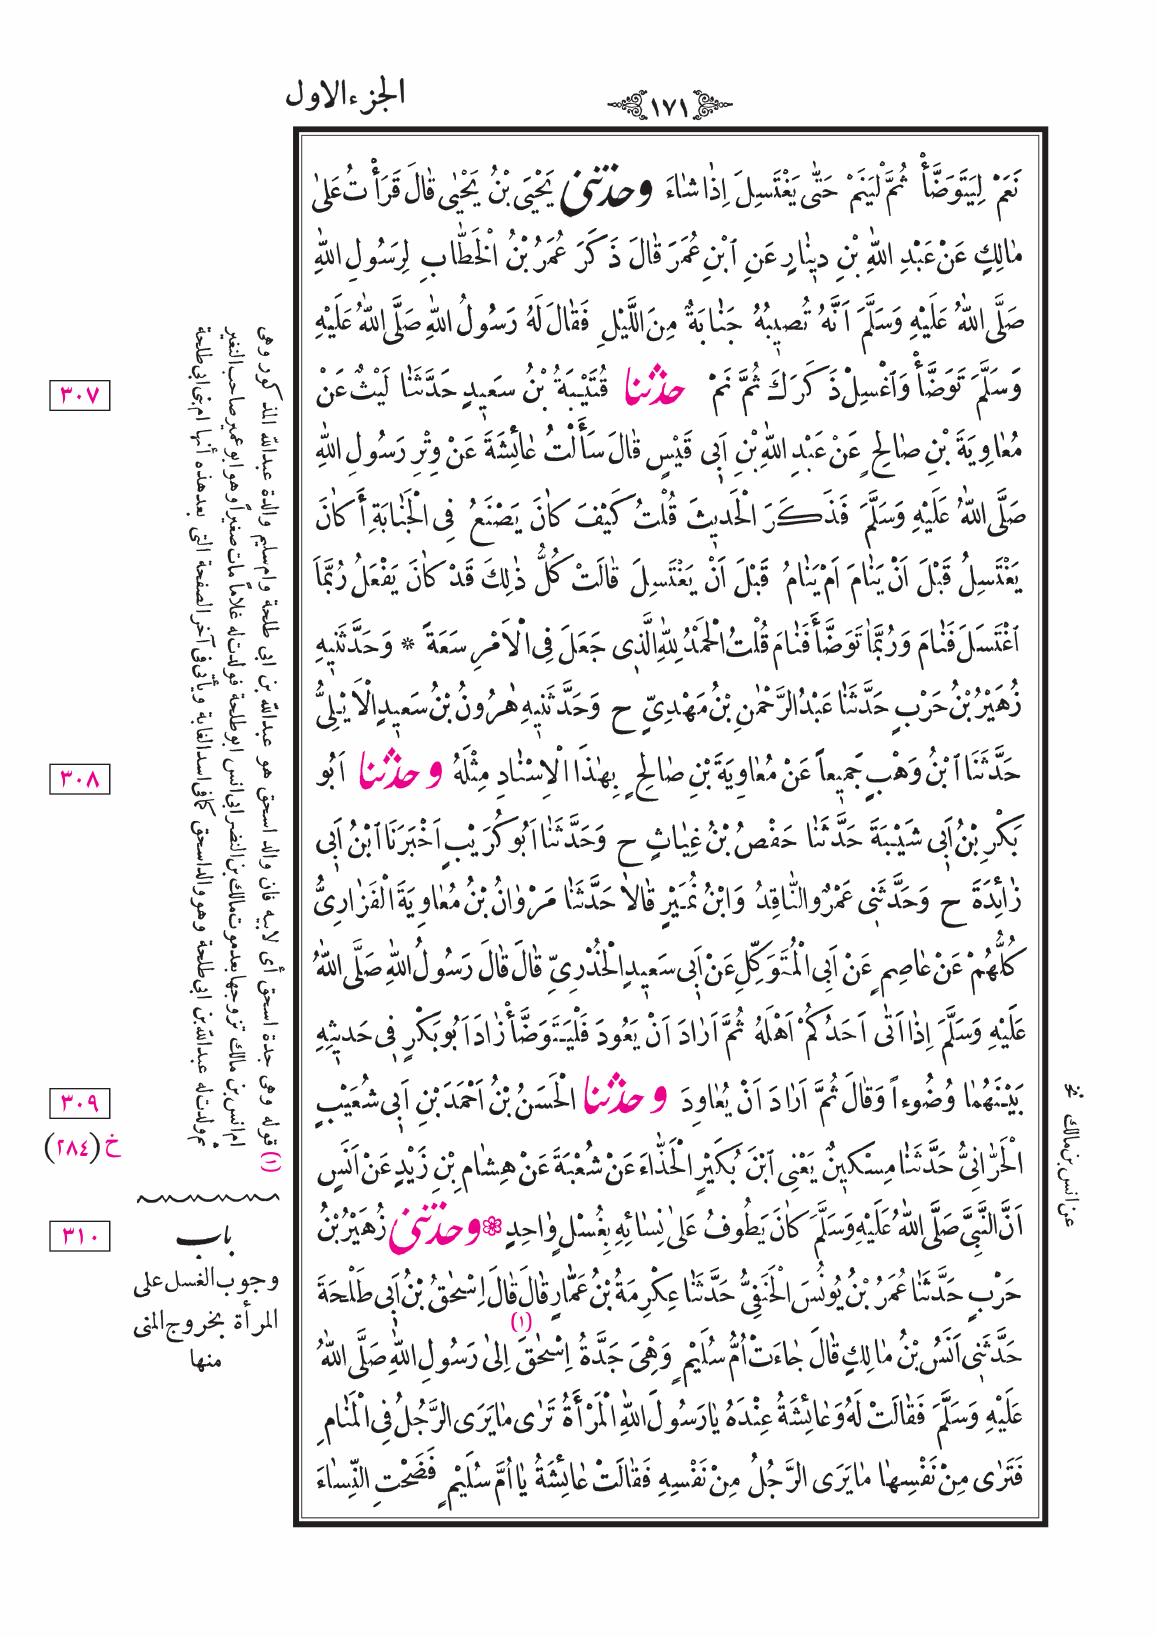 الجزء الاول
١٧١
نَعَمْ لِيَتَوَضَّأْ ثُمَّ لْيَنَمْ حَتّٰى يَغْتَسِلَ اِذٰا شٰاءَ وحدثنى يَحْيَى بْنُ يَحْيٰى قٰالَ قَرَأْتُ عَلىٰ
مٰالِكٍ عَنْ عَبْدِ اللّٰهِ بْنِ دينٰارٍ عَنِ ٱبْنِ عُمَرَ قٰالَ ذَكَرَ عُمَرُ بْنُ الْخَطّٰابِ لِرَسُولِ اللّٰهِ
صَلَّى اللّٰهُ عَلَيْهِ وَسَلَّمَ اَنَّهُ تُصيبُهُ جَنٰابَةٌ مِنَ اللَّيْلِ فَقٰالَ لَهُ رَسُولُ اللّٰهِ صَلَّى اللّٰهُ عَلَيْهِ
وَسَلَّمَ تَوَضَّأْ وَٱغْسِلْ ذَكَرَكَ ثُمَّ نَمْ حدثنا قُتَيْبَةُ بْنُ سَعيدٍ حَدَّثَنٰا لَيْثٌ عَنْ
مُعٰاوِيَةَ بْنِ صٰالِحٍ عَنْ عَبْدِ اللّٰهِ بْنِ اَبى قَيْسٍ قٰالَ سَأَلْتُ عٰائِشَةَ عَنْ وِتْرِ رَسُولِ اللّٰهِ
صَلَّى اللّٰهُ عَلَيْهِ وَسَلَّمَ فَذَكَرَ الْحَديثَ قُلْتُ كَيْفَ كٰانَ يَصْنَعُ فِى الْجَنٰابَةِ أَكٰانَ
يَغْتَسِلُ قَبْلَ اَنْ يَنٰامَ اَمْ يَنٰامُ قَبْلَ اَنْ يَغْتَسِلَ قٰالَتْ كُلُّ ذٰلِكَ قَدْ كٰانَ يَفْعَلُ رُبَّمَا
ٱغْتَسَلَ فَنٰامَ وَرُبَّمٰا تَوَضَّأَ فَنٰامَ قُلْتُ الْحَمْدُ لِلّٰهِ الَّذى جَعَلَ فِى الْاَمْرِ سَعَةً * وَحَدَّثَنيهِ
زُهَيْرُ بْنُ حَرْبٍ حَدَّثَنٰا عَبْدُ الرَّحْمٰنِ بْنُ مَهْدِىٍّ ح وَحَدَّثَنيهِ هٰرُونُ بْنُ سَعيدٍ الْاَيْلِىُّ
حَدَّثَنَا ٱبْنُ وَهْبٍ جَميعاً عَنْ مُعٰاوِيَةَ بْنِ صٰالِحٍ بِهٰذَا الْاِسْنٰادِ مِثْلَهُ وحدثنا اَبُو
بَكْرِ بْنُ اَبى شَيْبَةَ حَدَّثَنٰا حَفْصُ بْنُ غِيٰاثٍ ح وَحَدَّثَنٰا اَبُو كُرَيْبٍ اَخْبَرَنَا ٱبْنُ اَبى
زٰائِدَةَ ح وَحَدَّثَنى عَمْرٌو النّٰاقِدُ وَابْنُ نُمَيْرٍ قٰالاٰ حَدَّثَنٰا مَرْوٰانُ بْنُ مُعٰاوِيَةَ الْفَزٰارِىُّ
كُلُّهُمْ عَنْ عٰاصِمٍ عَنْ اَبِى الْمُتَوَكِّلِ عَنْ اَبى سَعيدٍ الْخُدْرِىِّ قٰالَ قٰالَ رَسُولُ اللّٰهِ صَلَّى اللّٰهُ
عَلَيْهِ وَسَلَّمَ اِذٰا اَتٰى اَحَدُكُمْ اَهْلَهُ ثُمَّ اَرٰادَ اَنْ يَعُودَ فَلْيَتَوَضَّأْ زٰادَ اَبُو بَكْرٍ فى حَديثِهِ
بَيْنَهُمٰا وُضُوءاً وَقٰالَ ثُمَّ اَرٰادَ اَنْ يُعٰاوِدَ وحدثنا الْحَسَنُ بْنُ اَحْمَدَ بْنِ اَبى شُعَيْبٍ
الْحَرّٰانِىُّ حَدَّثَنٰا مِسْكينٌ يَعْنِى ٱبْنَ بُكَيْرٍ الْحَذّٰاءَ عَنْ شُعْبَةَ عَنْ هِشٰامِ بْنِ زَيْدٍ عَنْ اَنَسٍ
اَنَّ النَّبِىَّ صَلَّى اللّٰهُ عَلَيْهِ وَسَلَّمَ كٰانَ يَطُوفُ عَلىٰ نِسٰائِهِ بِغُسْلٍ وٰاحِدٍ وحدثنى زُهَيْرُ بْنُ
حَرْبٍ حَدَّثَنٰا عُمَرُ بْنُ يُونُسَ الْحَنَفِىُّ حَدَّثَنٰا عِكْرِمَةُ بْنُ عَمّٰارٍ قٰالَ قٰالَ اِسْحٰقُ بْنُ اَبى طَلْحَةَ
حَدَّثَنى اَنَسُ بْنُ مٰالِكٍ قٰالَ جٰاءَتْ اُمُّ سُلَيْمٍ (١) وَهْىَ جَدَّةُ اِسْحٰقَ اِلىٰ رَسُولِ اللّٰهِ صَلَّى اللّٰهُ
عَلَيْهِ وَسَلَّمَ فَقٰالَتْ لَهُ وَعٰائِشَةُ عِنْدَهُ يٰا رَسُولَ اللّٰهِ الْمَرْأَةُ تَرٰى مٰا يَرَى الرَّجُلُ فِى الْمَنٰامِ
فَتَرٰى مِنْ نَفْسِهٰا مٰا يَرَى الرَّجُلُ مِنْ نَفْسِهِ فَقٰالَتْ عٰائِشَةُ يٰا اُمَّ سُلَيْمٍ فَضَحْتِ النِّسٰاءَ
عن انس بن مالك نخ
٣٠٧
٣٠٨
٣٠٩
خ (٢٨٤)
٣١٠
باب
وجوب الغسل على
المرأة بخروج المنى
منها
(١) قوله وهى جدة اسحق أى لابيه فان والد اسحق هو عبدالله بن ابى طلحة وام سليم والدة عبدالله المذكور وهى
ام انس بن مالك تزوجها بعد موت مالك بن النضر ابى انس ابو طلحة فولدت له غلاماً مات صغيراً وهو ابو عمير صاحب النغير
ثم ولدت له عبدالله بن ابى طلحة وهو والد اسحق كما فى اسد الغابة ويأتى فى آخر الصفحة التى بعد هذه أنها ام بنى ابى طلحة